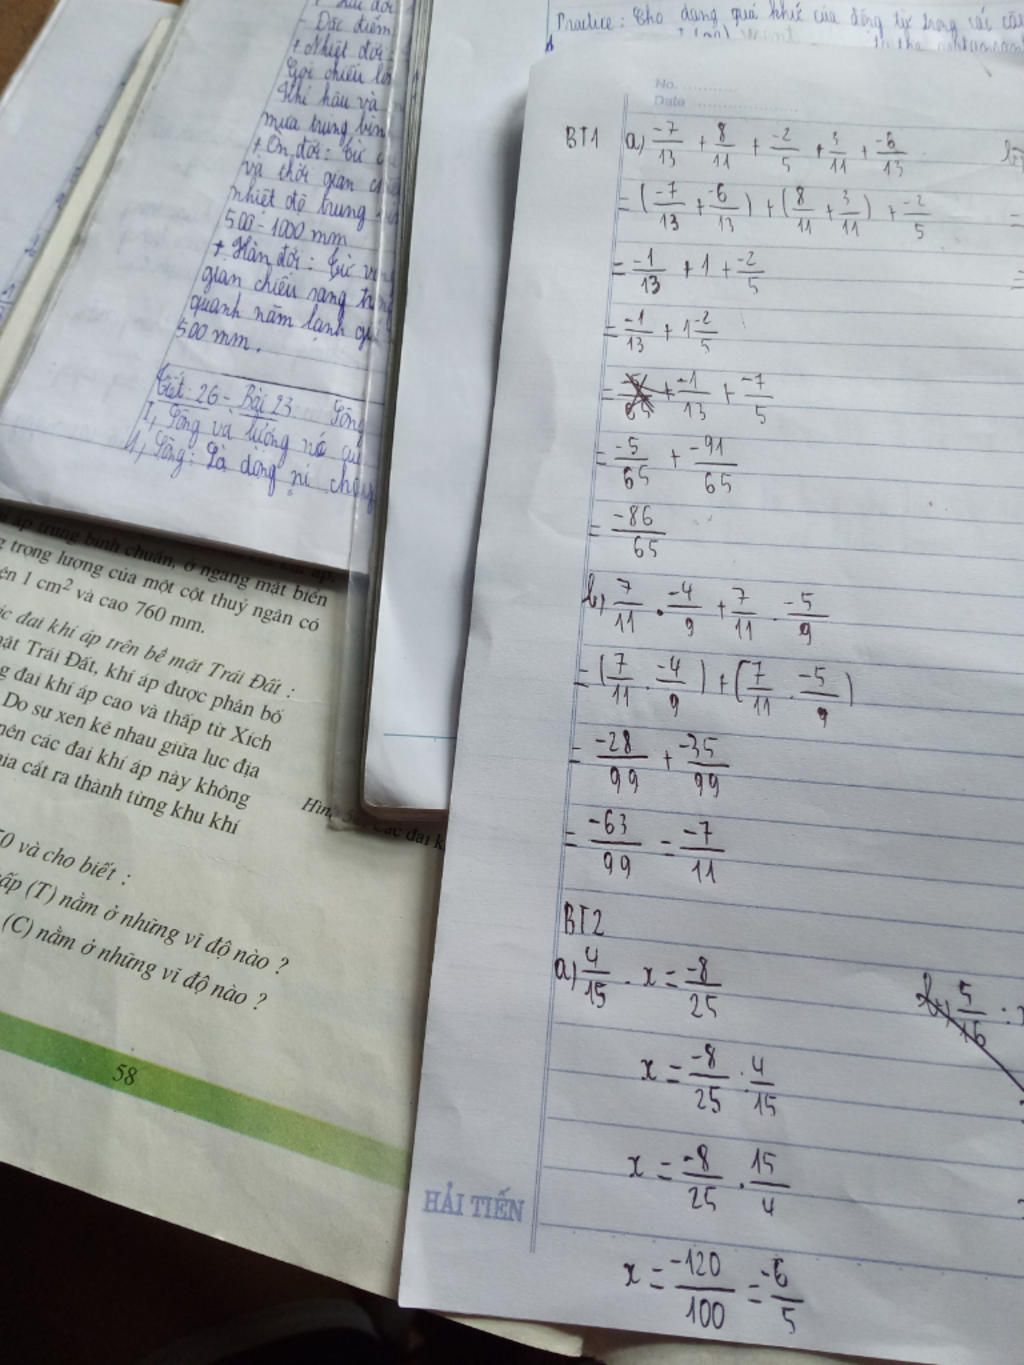 - Đặc điểm
+ Nhiệt đới
Gọi chiếu
Khí hậu và
mưa trung bìn
+ Ôn đới: từ
và thời gian
nhiệt độ trung
500 - 1000 mm
+ Hàn đới: từ
gian chiếu sáng
quanh năm lạnh
500 mm.
Tiết: 26 - Bài 23 Sông
I, Sông và lượng
1, Sông: Là dòng
áp trung bình chuẩn, ở ngang mặt biển
trọng lượng của một cột thuỷ ngân có
1 cm² và cao 760 mm.
đai khí áp trên bề mặt Trái Đất :
Trái Đất, khí áp được phân bố
đai khí áp cao và thấp từ Xích
Do sự xen kẽ nhau giữa lục địa
nên các đai khí áp này không
cắt ra thành từng khu khí
Hình
các đai
và cho biết :
(T) nằm ở những vĩ độ nào ?
(C) nằm ở những vĩ độ nào ?
58
Practice: Cho dạng quá khứ của động từ trong các
No. ............
Date ......................
BT1 a) -7/13 + 8/11 + -2/5 + 3/11 + -6/13
= (-7/13 + -6/13) + (8/11 + 3/11) + -2/5
= -1/13 + 1 + -2/5
= -1/13 + 1 -2/5
= + -1/13 + -7/5
= -5/65 + -91/65
= -86/65
b) 7/11 . -4/9 + 7/11 . -5/9
= (7/11 . -4/9) + (7/11 . -5/9)
= -28/99 + -35/99
= -63/99 = -7/11
BT2
a) 4/15 . x = -8/25
x = -8/25 : 4/15
x = -8/25 . 15/4
x = -120/100 = -6/5
b) 5/16 :
HẢI TIẾN